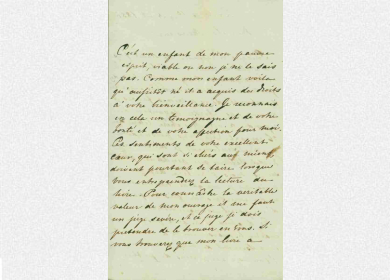 C'est un enfant de mon pauvre
esprit, viable ou non je ne le sais
pas. Comme mon enfant voila
qu'aussitôt né il a acquis des droits
à votre bienveillance. Je reconnais
en cela un temoignage et de votre
bonté et de votre affection pour moi.
Ces sentiments de votre excellent
cœur, qui sont si chers au mien,
doivent pourtant se taire lorsque
vous entreprendrez la lecture du
livre. Pour connaître la veritable
valeur de mon ouvrage il me faut
un juge sevère, et ce juge je dois
pretendre de le trouver en Vous. Si
vous trouverez que mon livre a